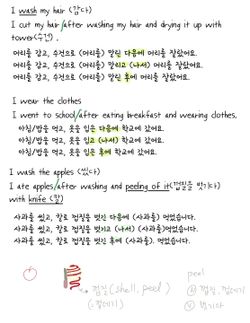 I wash my hair (감다)
I cut my hair/after washing my hair and drying it up with
tower(수건).
머리를 감고, 수건으로 (머리를) 말린 다음에 머리를 잘랐어요.
머리를 감고, 수건으로 (머리를) 말리고 (나서) 머리를 잘랐어요.
머리를 감고, 수건으로 (머리를) 말린 후에 머리를 잘랐어요.
I wear the clothes
I went to school/after eating breakfast and wearing clothes.
아침/밥을 먹고, 옷을 입은 다음에 학교에 갔어요.
아침/밥을 먹고, 옷을 입고 (나서) 학교에 갔어요.
아침/밥을 먹고, 옷을 입은 후에 학교에 갔어요.
I wash the apples (씻다)
I ate apples/after washing and peeling of it(껍질을 벗기다)
with knife (칼)
사과를 씻고, 칼로 껍질을 벗긴 다음에 (사과를) 먹었습니다.
사과를 씻고, 칼로 껍질을 벗기고 (나서) (사과를)먹었습니다.
사과를 씻고, 칼로 껍질을 벗긴 후에 (사과를). 먹었습니다.
peel
껍질 (shell, peel)
껍질, 껍데기
(=껍데기)
벗기다